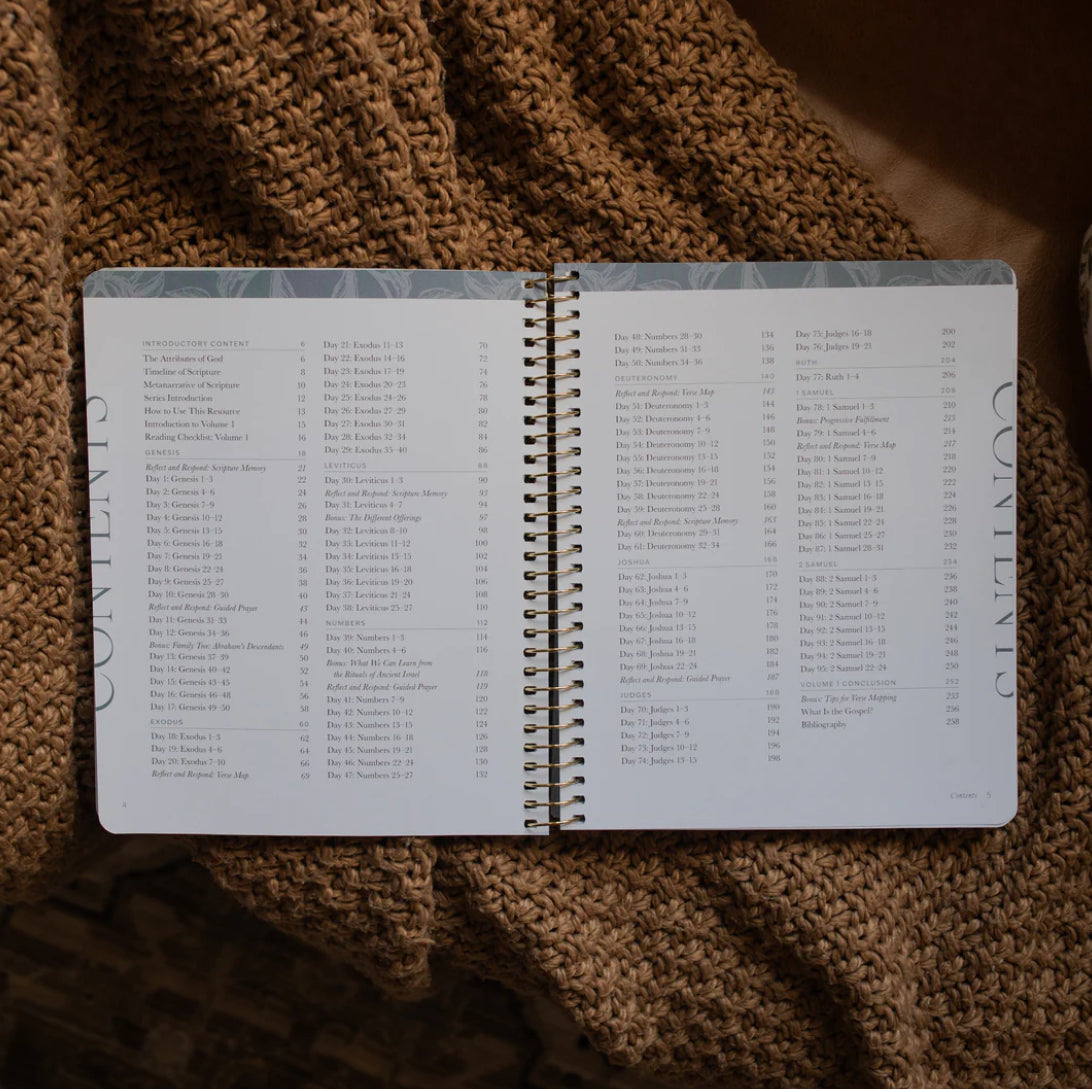 CONTENTS
INTRODUCTORY CONTENT 6
The Attributes of God 6
Timeline of Scripture 8
Metanarrative of Scripture 10
Series Introduction 12
How to Use This Resource 13
Introduction to Volume 1 15
Reading Checklist: Volume 1 16
GENESIS 18
Reflect and Respond: Scripture Memory 21
Day 1: Genesis 1–3 22
Day 2: Genesis 4–6 24
Day 3: Genesis 7–9 26
Day 4: Genesis 10–12 28
Day 5: Genesis 13–15 30
Day 6: Genesis 16–18 32
Day 7: Genesis 19–21 34
Day 8: Genesis 22–24 36
Day 9: Genesis 25–27 38
Day 10: Genesis 28–30 40
Reflect and Respond: Guided Prayer 43
Day 11: Genesis 31–33 44
Day 12: Genesis 34–36 46
Bonus: Family Tree: Abraham's Descendants 49
Day 13: Genesis 37–39 50
Day 14: Genesis 40–42 52
Day 15: Genesis 43–45 54
Day 16: Genesis 46–48 56
Day 17: Genesis 49–50 58
EXODUS 60
Day 18: Exodus 1–3 62
Day 19: Exodus 4–6 64
Day 20: Exodus 7–10 66
Reflect and Respond: Verse Map 69
Day 21: Exodus 11–13 70
Day 22: Exodus 14–16 72
Day 23: Exodus 17–19 74
Day 24: Exodus 20–23 76
Day 25: Exodus 24–26 78
Day 26: Exodus 27–29 80
Day 27: Exodus 30–31 82
Day 28: Exodus 32–34 84
Day 29: Exodus 35–40 86
LEVITICUS 88
Day 30: Leviticus 1–3 90
Reflect and Respond: Scripture Memory 93
Day 31: Leviticus 4–7 94
Bonus: The Different Offerings 97
Day 32: Leviticus 8–10 98
Day 33: Leviticus 11–12 100
Day 34: Leviticus 13–15 102
Day 35: Leviticus 16–18 104
Day 36: Leviticus 19–20 106
Day 37: Leviticus 21–24 108
Day 38: Leviticus 25–27 110
NUMBERS 112
Day 39: Numbers 1–3 114
Day 40: Numbers 4–6 116
Bonus: What We Can Learn from
the Rituals of Ancient Israel 118
Reflect and Respond: Guided Prayer 119
Day 41: Numbers 7–9 120
Day 42: Numbers 10–12 122
Day 43: Numbers 13–15 124
Day 44: Numbers 16–18 126
Day 45: Numbers 19–21 128
Day 46: Numbers 22–24 130
Day 47: Numbers 25–27 132
4
Day 48: Numbers 28–30 134
Day 49: Numbers 31–33 136
Day 50: Numbers 34–36 138
DEUTERONOMY 140
Reflect and Respond: Verse Map 143
Day 51: Deuteronomy 1–3 144
Day 52: Deuteronomy 4–6 146
Day 53: Deuteronomy 7–9 148
Day 54: Deuteronomy 10–12 150
Day 55: Deuteronomy 13–15 152
Day 56: Deuteronomy 16–18 154
Day 57: Deuteronomy 19–21 156
Day 58: Deuteronomy 22–24 158
Day 59: Deuteronomy 25–28 160
Reflect and Respond: Scripture Memory 163
Day 60: Deuteronomy 29–31 164
Day 61: Deuteronomy 32–34 166
JOSHUA 168
Day 62: Joshua 1–3 170
Day 63: Joshua 4–6 172
Day 64: Joshua 7–9 174
Day 65: Joshua 10–12 176
Day 66: Joshua 13–15 178
Day 67: Joshua 16–18 180
Day 68: Joshua 19–21 182
Day 69: Joshua 22–24 184
Reflect and Respond: Guided Prayer 187
JUDGES 188
Day 70: Judges 1–3 190
Day 71: Judges 4–6 192
Day 72: Judges 7–9 194
Day 73: Judges 10–12 196
Day 74: Judges 13–15 198
Day 75: Judges 16–18 200
Day 76: Judges 19–21 202
RUTH 204
Day 77: Ruth 1–4 206
1 SAMUEL 208
Day 78: 1 Samuel 1–3 210
Bonus: Progressive Fulfillment 213
Day 79: 1 Samuel 4–6 214
Reflect and Respond: Verse Map 217
Day 80: 1 Samuel 7–9 218
Day 81: 1 Samuel 10–12 220
Day 82: 1 Samuel 13–15 222
Day 83: 1 Samuel 16–18 224
Day 84: 1 Samuel 19–21 226
Day 85: 1 Samuel 22–24 228
Day 86: 1 Samuel 25–27 230
Day 87: 1 Samuel 28–31 232
2 SAMUEL 234
Day 88: 2 Samuel 1–3 236
Day 89: 2 Samuel 4–6 238
Day 90: 2 Samuel 7–9 240
Day 91: 2 Samuel 10–12 242
Day 92: 2 Samuel 13–15 244
Day 93: 2 Samuel 16–18 246
Day 94: 2 Samuel 19–21 248
Day 95: 2 Samuel 22–24 250
VOLUME 1 CONCLUSION 252
Bonus: Tips for Verse Mapping 255
What Is the Gospel? 256
Bibliography 258
CONTENTS
Contents 5